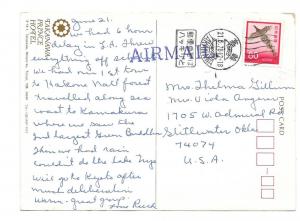 TAKANAWA
PRINCE
HOTEL
June 21.
We had 6 hour
delay in L.A. Threw
everything off schedule
We had our 1st tour
to Hakone Nat'l forest
travelled along sea
coast to Kamakura
where we saw the
2nd largest Bronze Buddha
Then we had rain
couldn't do the Lake Trip
will go to Kyoto after
much deliberation
warm - great group.
Love Ruth
AIRMAIL
Mrs. Thelma Gillum
Mrs. Viola
1705 W. Admiral Rd
Stillwater Okla
74074
U.S.A.
POST CARD